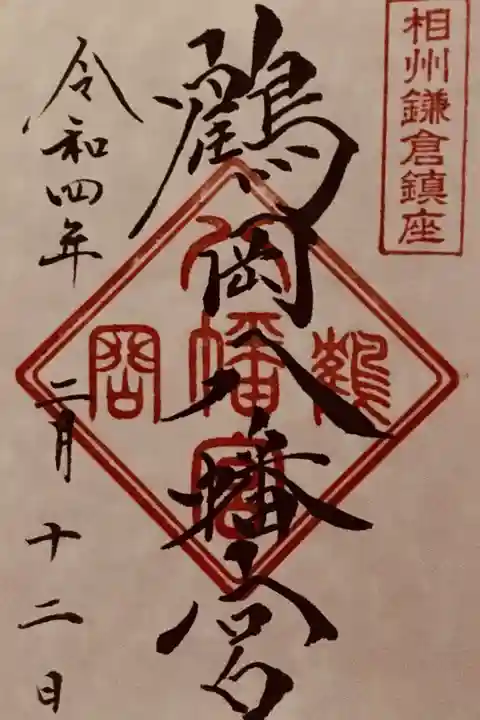 相州鎌倉鎮座
鶴岡八幡宮
鶴
八幡宮
岡
令和四年
二月十二日